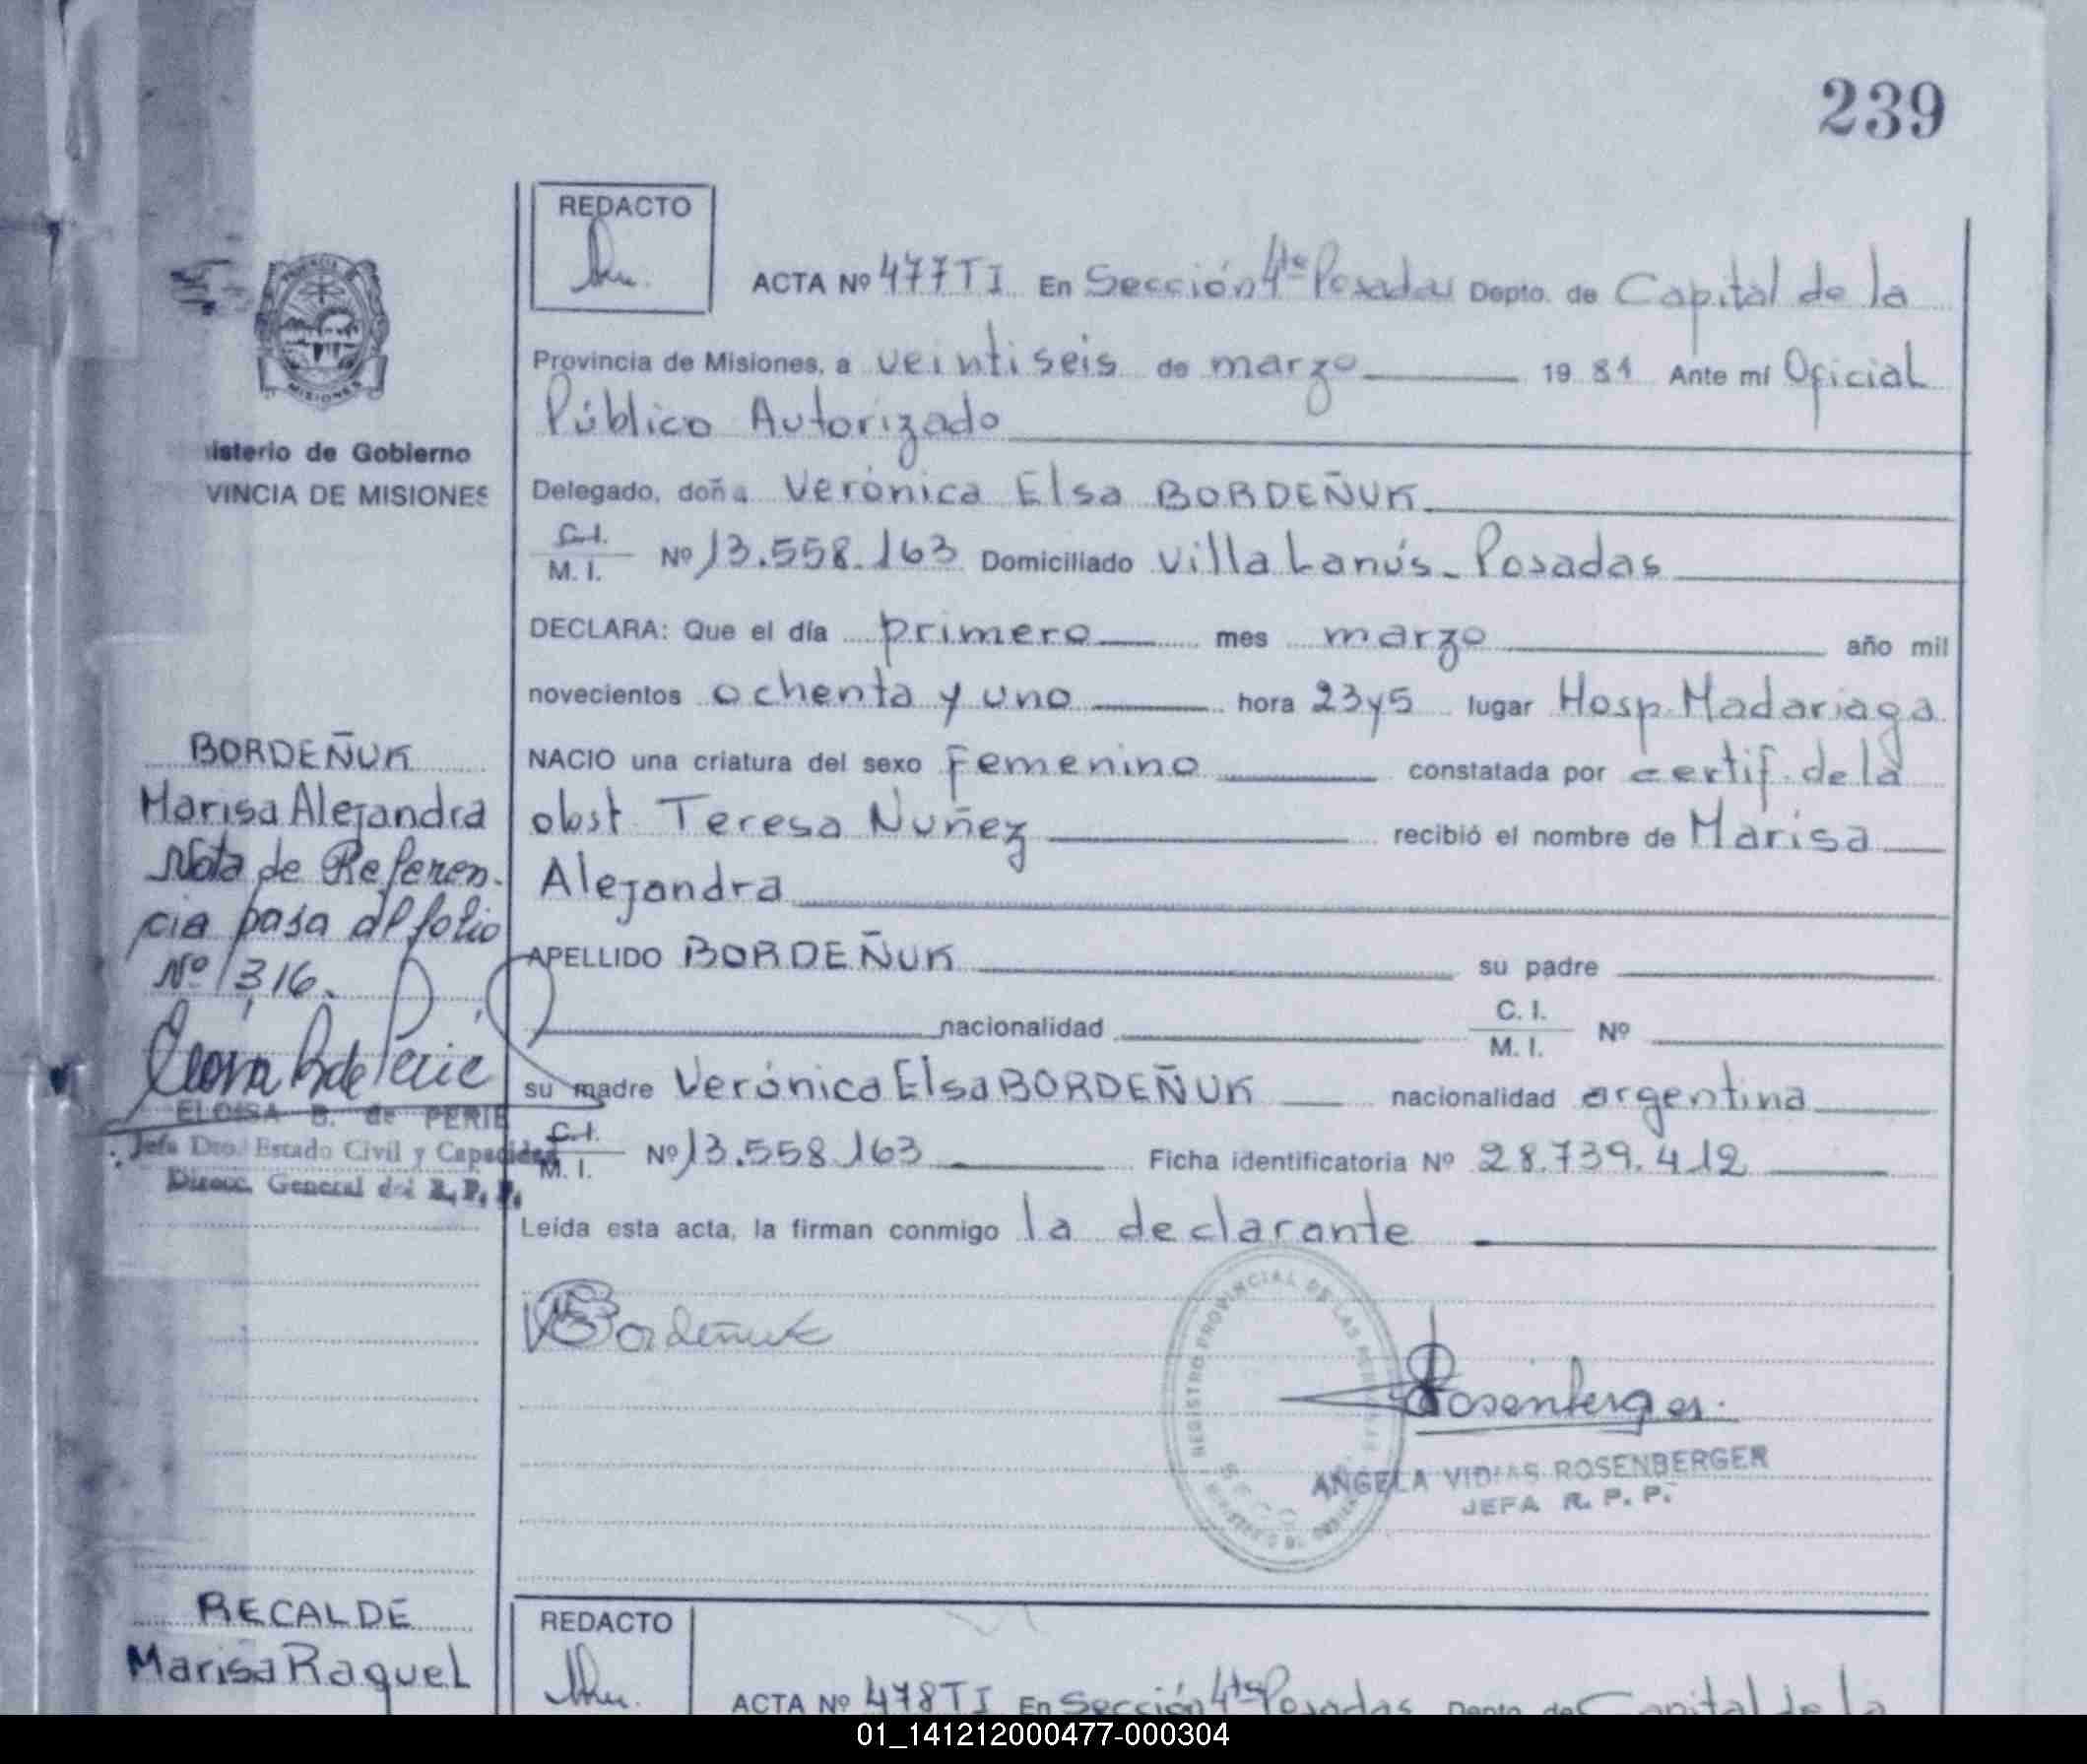 239
REDACTO
ACTA Nº 477 T I En Sección 4ta Posadas Depto. de Capital de la
Provincia de Misiones, a veintiseis de marzo 19 81 Ante mí Oficial
Público Autorizado
isterio de Gobierno
VINCIA DE MISIONES
Delegado, doña Verónica Elsa BORDEÑUK
C.I.
M. I. Nº 13.558.163 Domiciliado Villa Lanús - Posadas
DECLARA: Que el día primero mes marzo año mil
novecientos ochenta y uno hora 23 y 5 lugar Hosp. Madariaga
NACIO una criatura del sexo Femenino constatada por certif. de la
obst. Teresa Nuñez recibió el nombre de Marisa
Alejandra
APELLIDO BORDEÑUK su padre
nacionalidad C. I.
M. I. Nº
su madre Verónica Elsa BORDEÑUK nacionalidad argentina
C.I.
M. I. Nº 13.558.163 Ficha identificatoria Nº 28.739.412
Leída esta acta, la firman conmigo la declarante
BORDEÑUK
Marisa Alejandra
Nota de Referen-
cia pasa al folio
Nº 316.
ELOISA B. de PERIE
Jefa Dto. Estado Civil y Capacidad
Direcc. General del R. P. P.
Bordeñuk
REGISTRO PROVINCIAL DE LAS
Rosenberger
ANGELA VIDIAS ROSENBERGER
JEFA R. P. P.
RECALDE
Marisa Raquel
REDACTO
ACTA Nº 478 T I En Sección 4ta Posadas Depto. de Capital de la
01_141212000477-000304